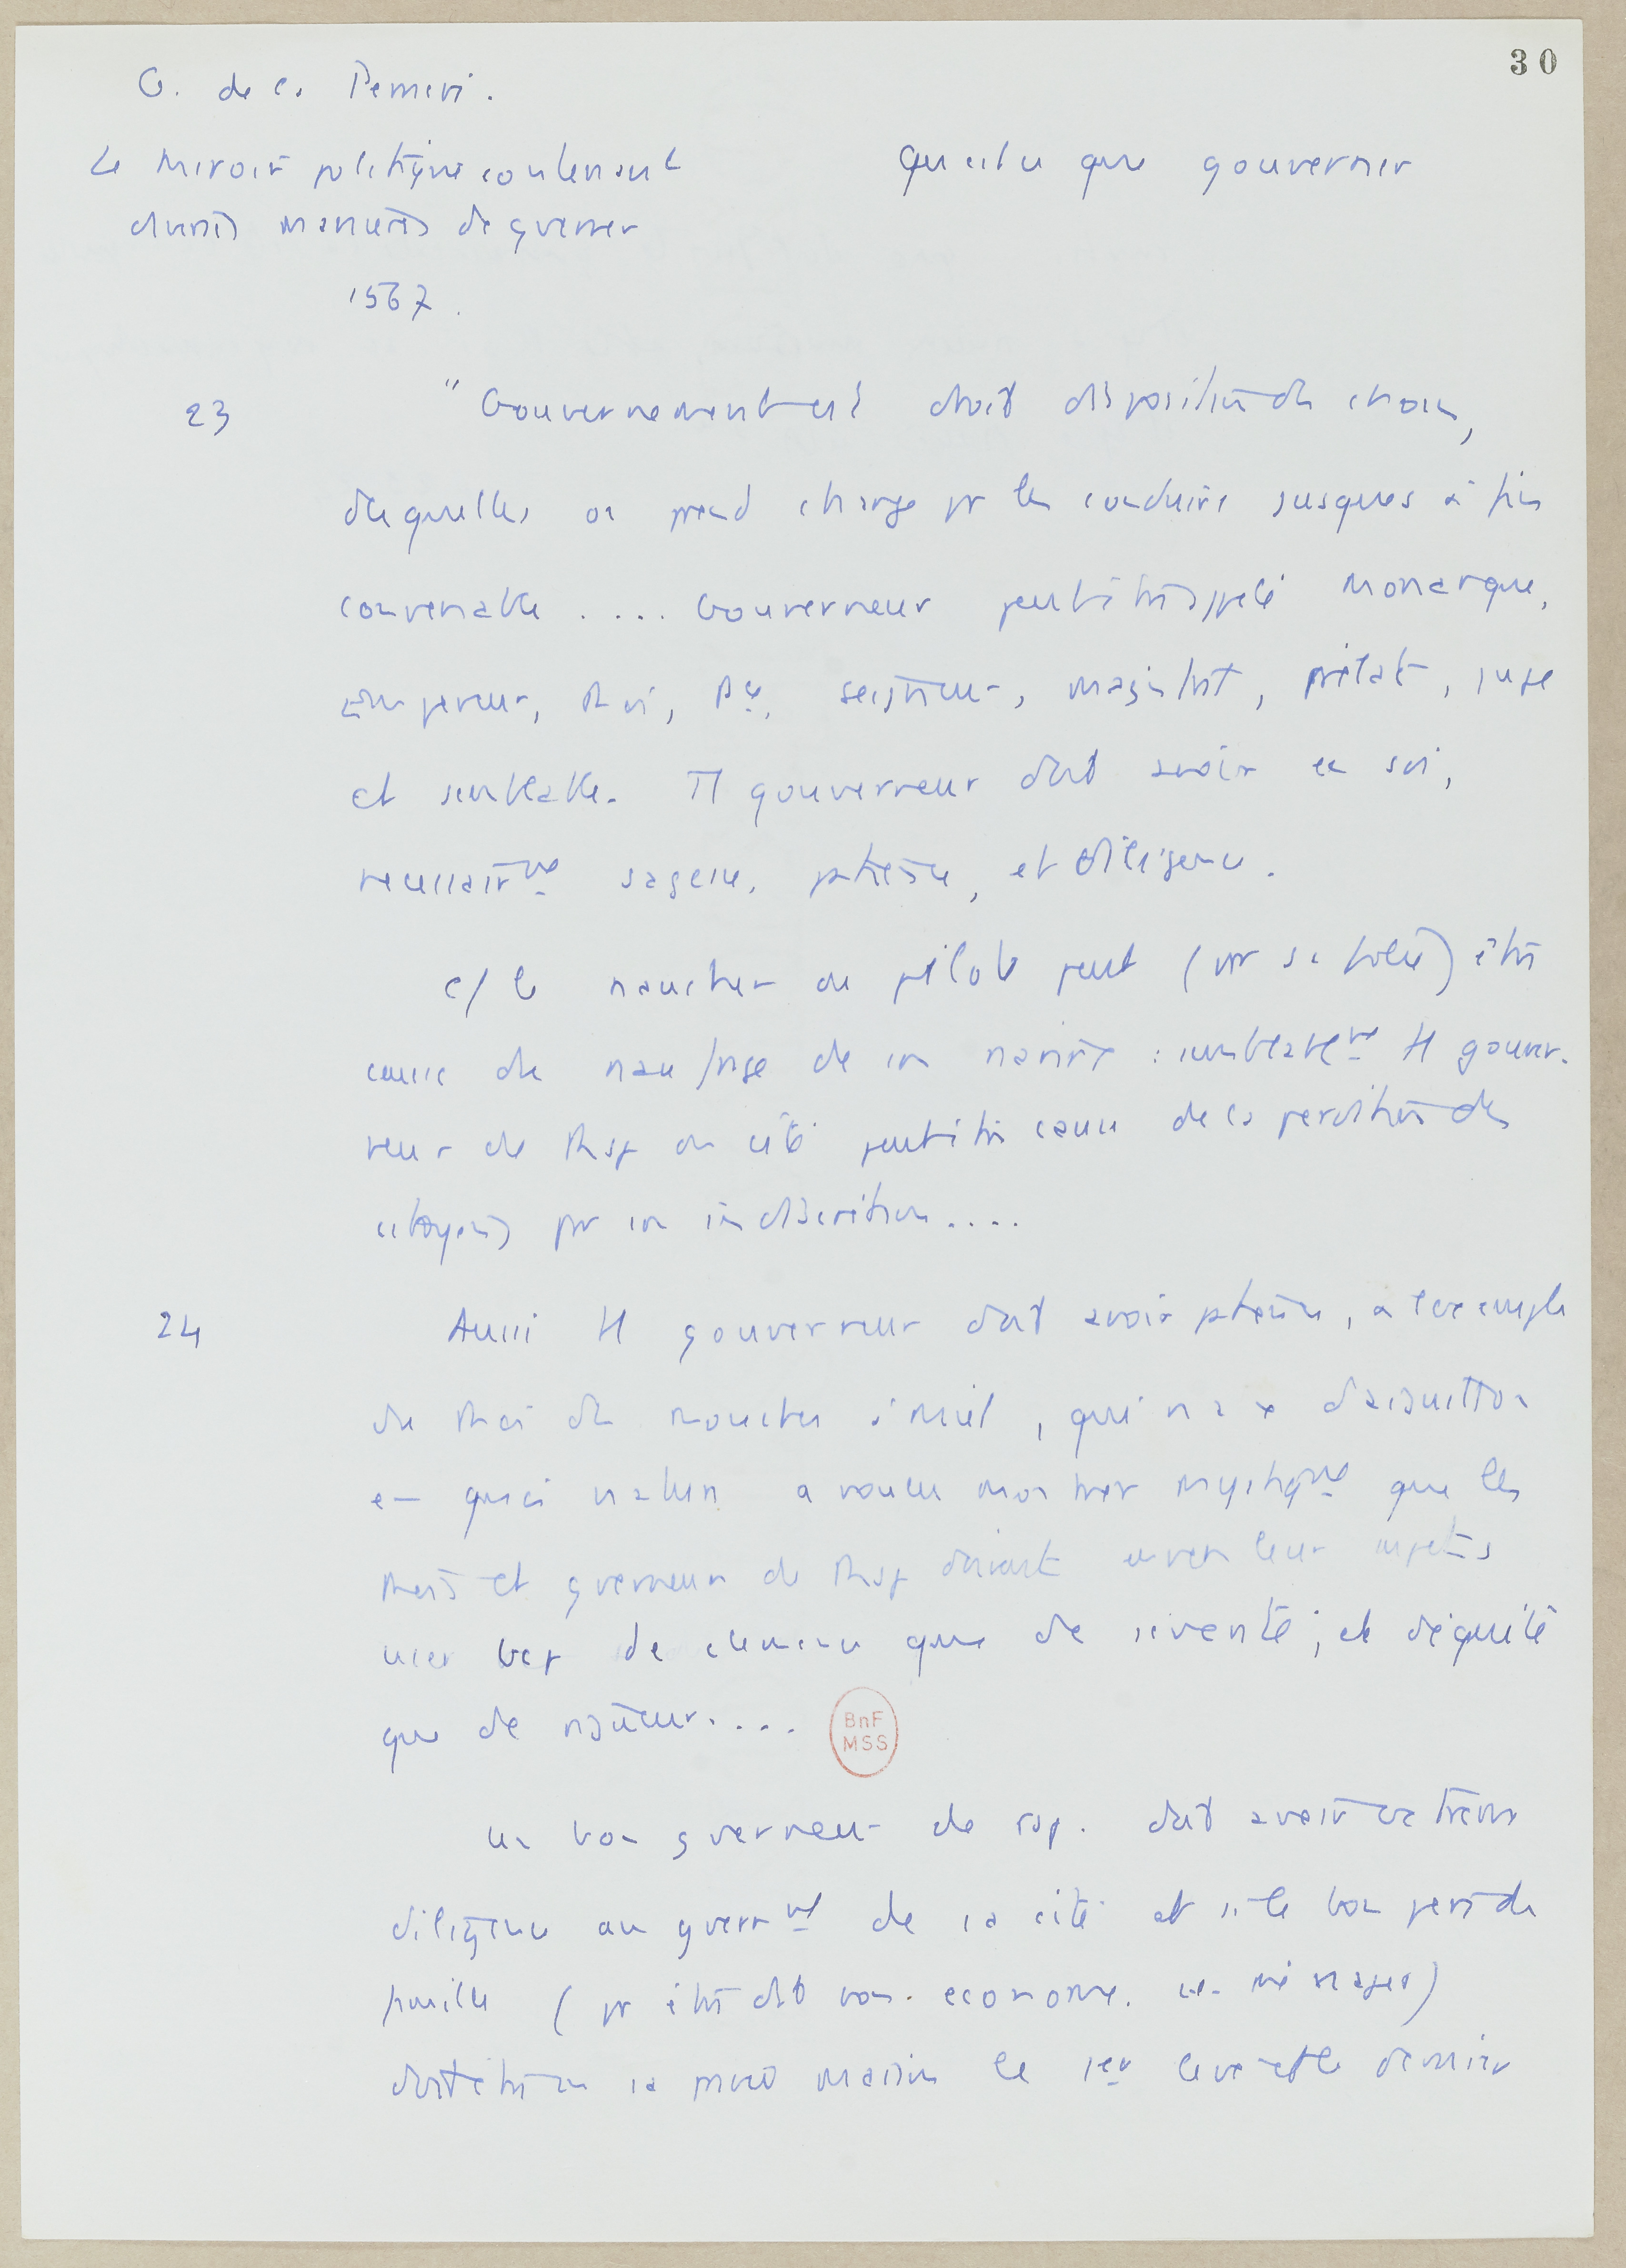 30
G. de la Perrière.
Le miroir politique contenant
diverses manières de gverner
1567.
Qu'est-ce que gouverner
23
"Gouvernement est droit disposition des choses,
desquelles on prend charge pr les conduire jusques à fin
convenable .... Gouverneur peut être appelé monarque,
Empereur, Roi, Pce, seigneur, magistrat, prélat, juge
et semblable. Tt gouverneur doit avoir en soi,
nécessairemt sagesse, patience, et diligence.
c/ le naucher ou pilote peut (par sa folie) être
cause du naufrage de son navire : semblablemt tt gouver-
neur de Rsp ou cité peut être cause de la perdition des
citoyens par son indiscrétion....
24
Aussi tt gouverneur doit avoir patience, à l'exemple
du Roi des mouches à miel, qui n'a x d'aiguillon
en quoi nature a voulu montrer mystiqmt que les
Rois et gverneurs de Rsp doivent envers leurs sujets
user bcp de clémence que de sévérité, et d'équité
que de rigueur....
BnF
MSS
Un bon gverneur de rsp. doit avoir extrême
diligence au gvernmt de sa cité et si le bon père de
famille (pr être dit bon économe. ménager)
doit être en sa maison le 1er levé et le dernier